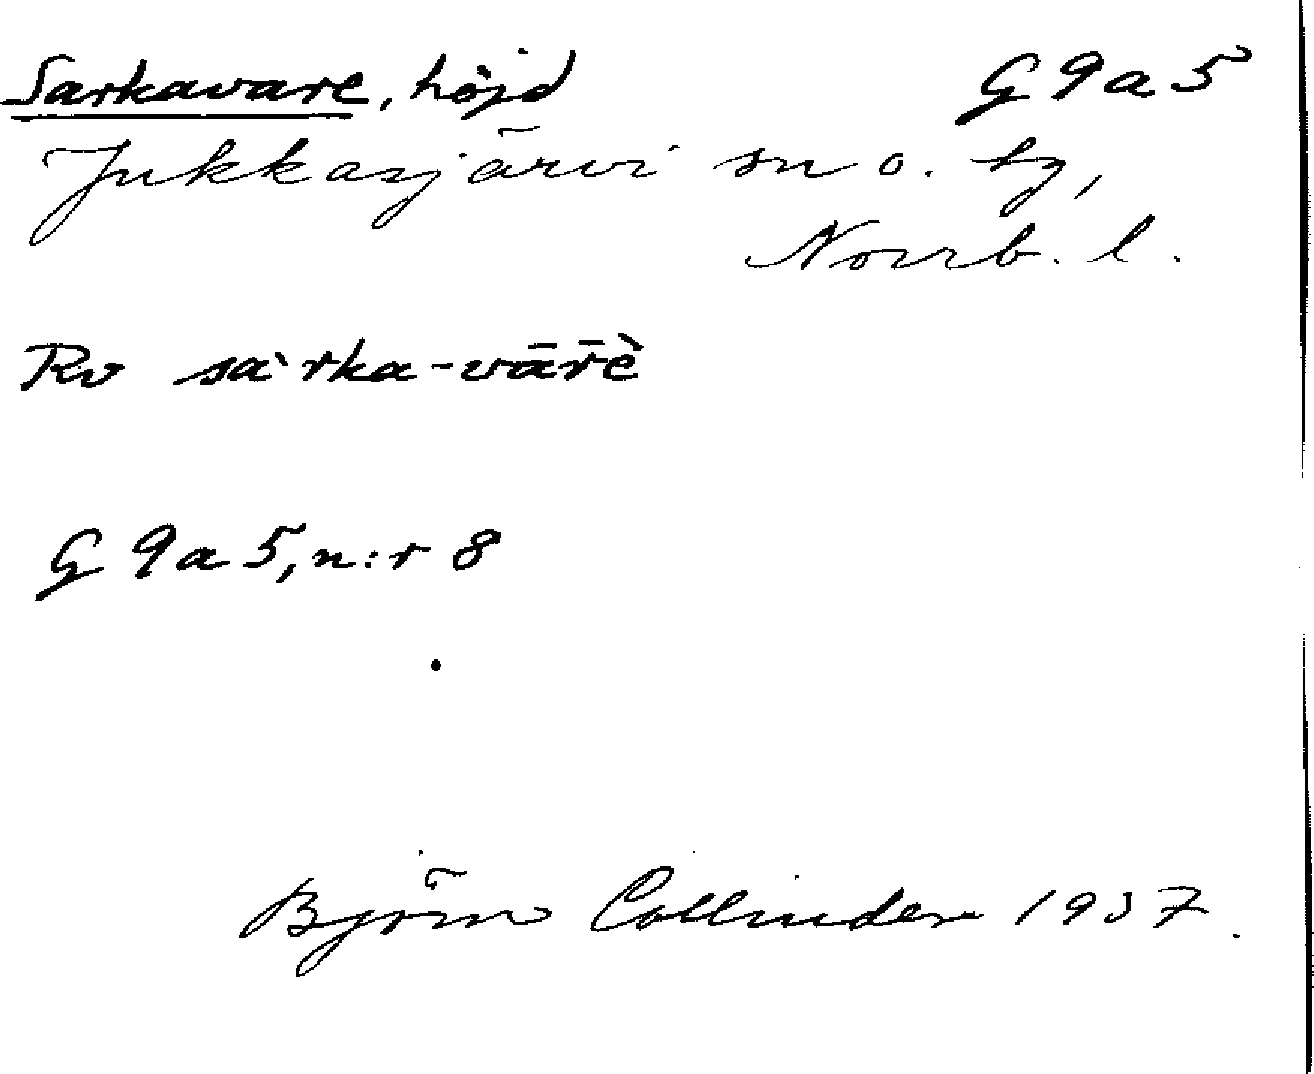 Sarkavare, höjd G 9 a 5
Jukkasjärvi sn o. tg,
Norrb. l.
Rv sàrka-vār̄ḕ
G 9 a 5, n:r 8
Björn Collinder 1937.